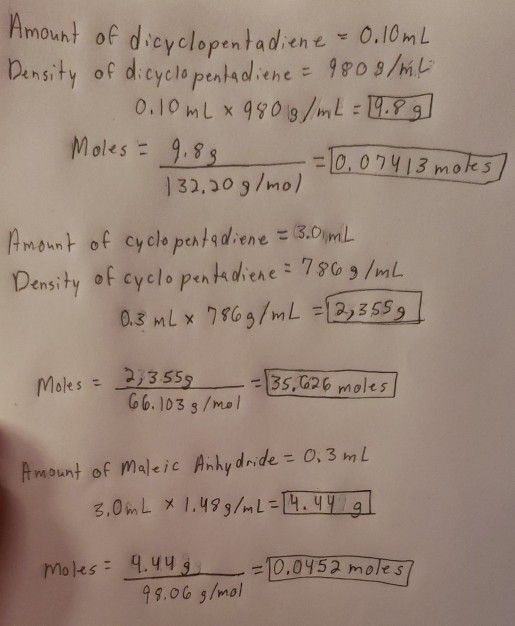 Amount of dicyclopentadiene = 0.10mL
Density of dicyclopentadiene = 980 g/mL
0.10 mL x 980 g/mL = 9.8 g
Moles = 9.8g / 132.20 g/mol = 0.07413 moles
Amount of cyclopentadiene = 3.0 mL
Density of cyclopentadiene = 786 g/mL
0.3 mL x 786g/mL = 2,355g
Moles = 2,355g / 66.103 g/mol = 35.626 moles
Amount of Maleic Anhydride = 0.3 mL
3.0mL x 1.48g/mL = 4.44 g
Moles = 4.44 g / 98.06 g/mol = 0.0452 moles